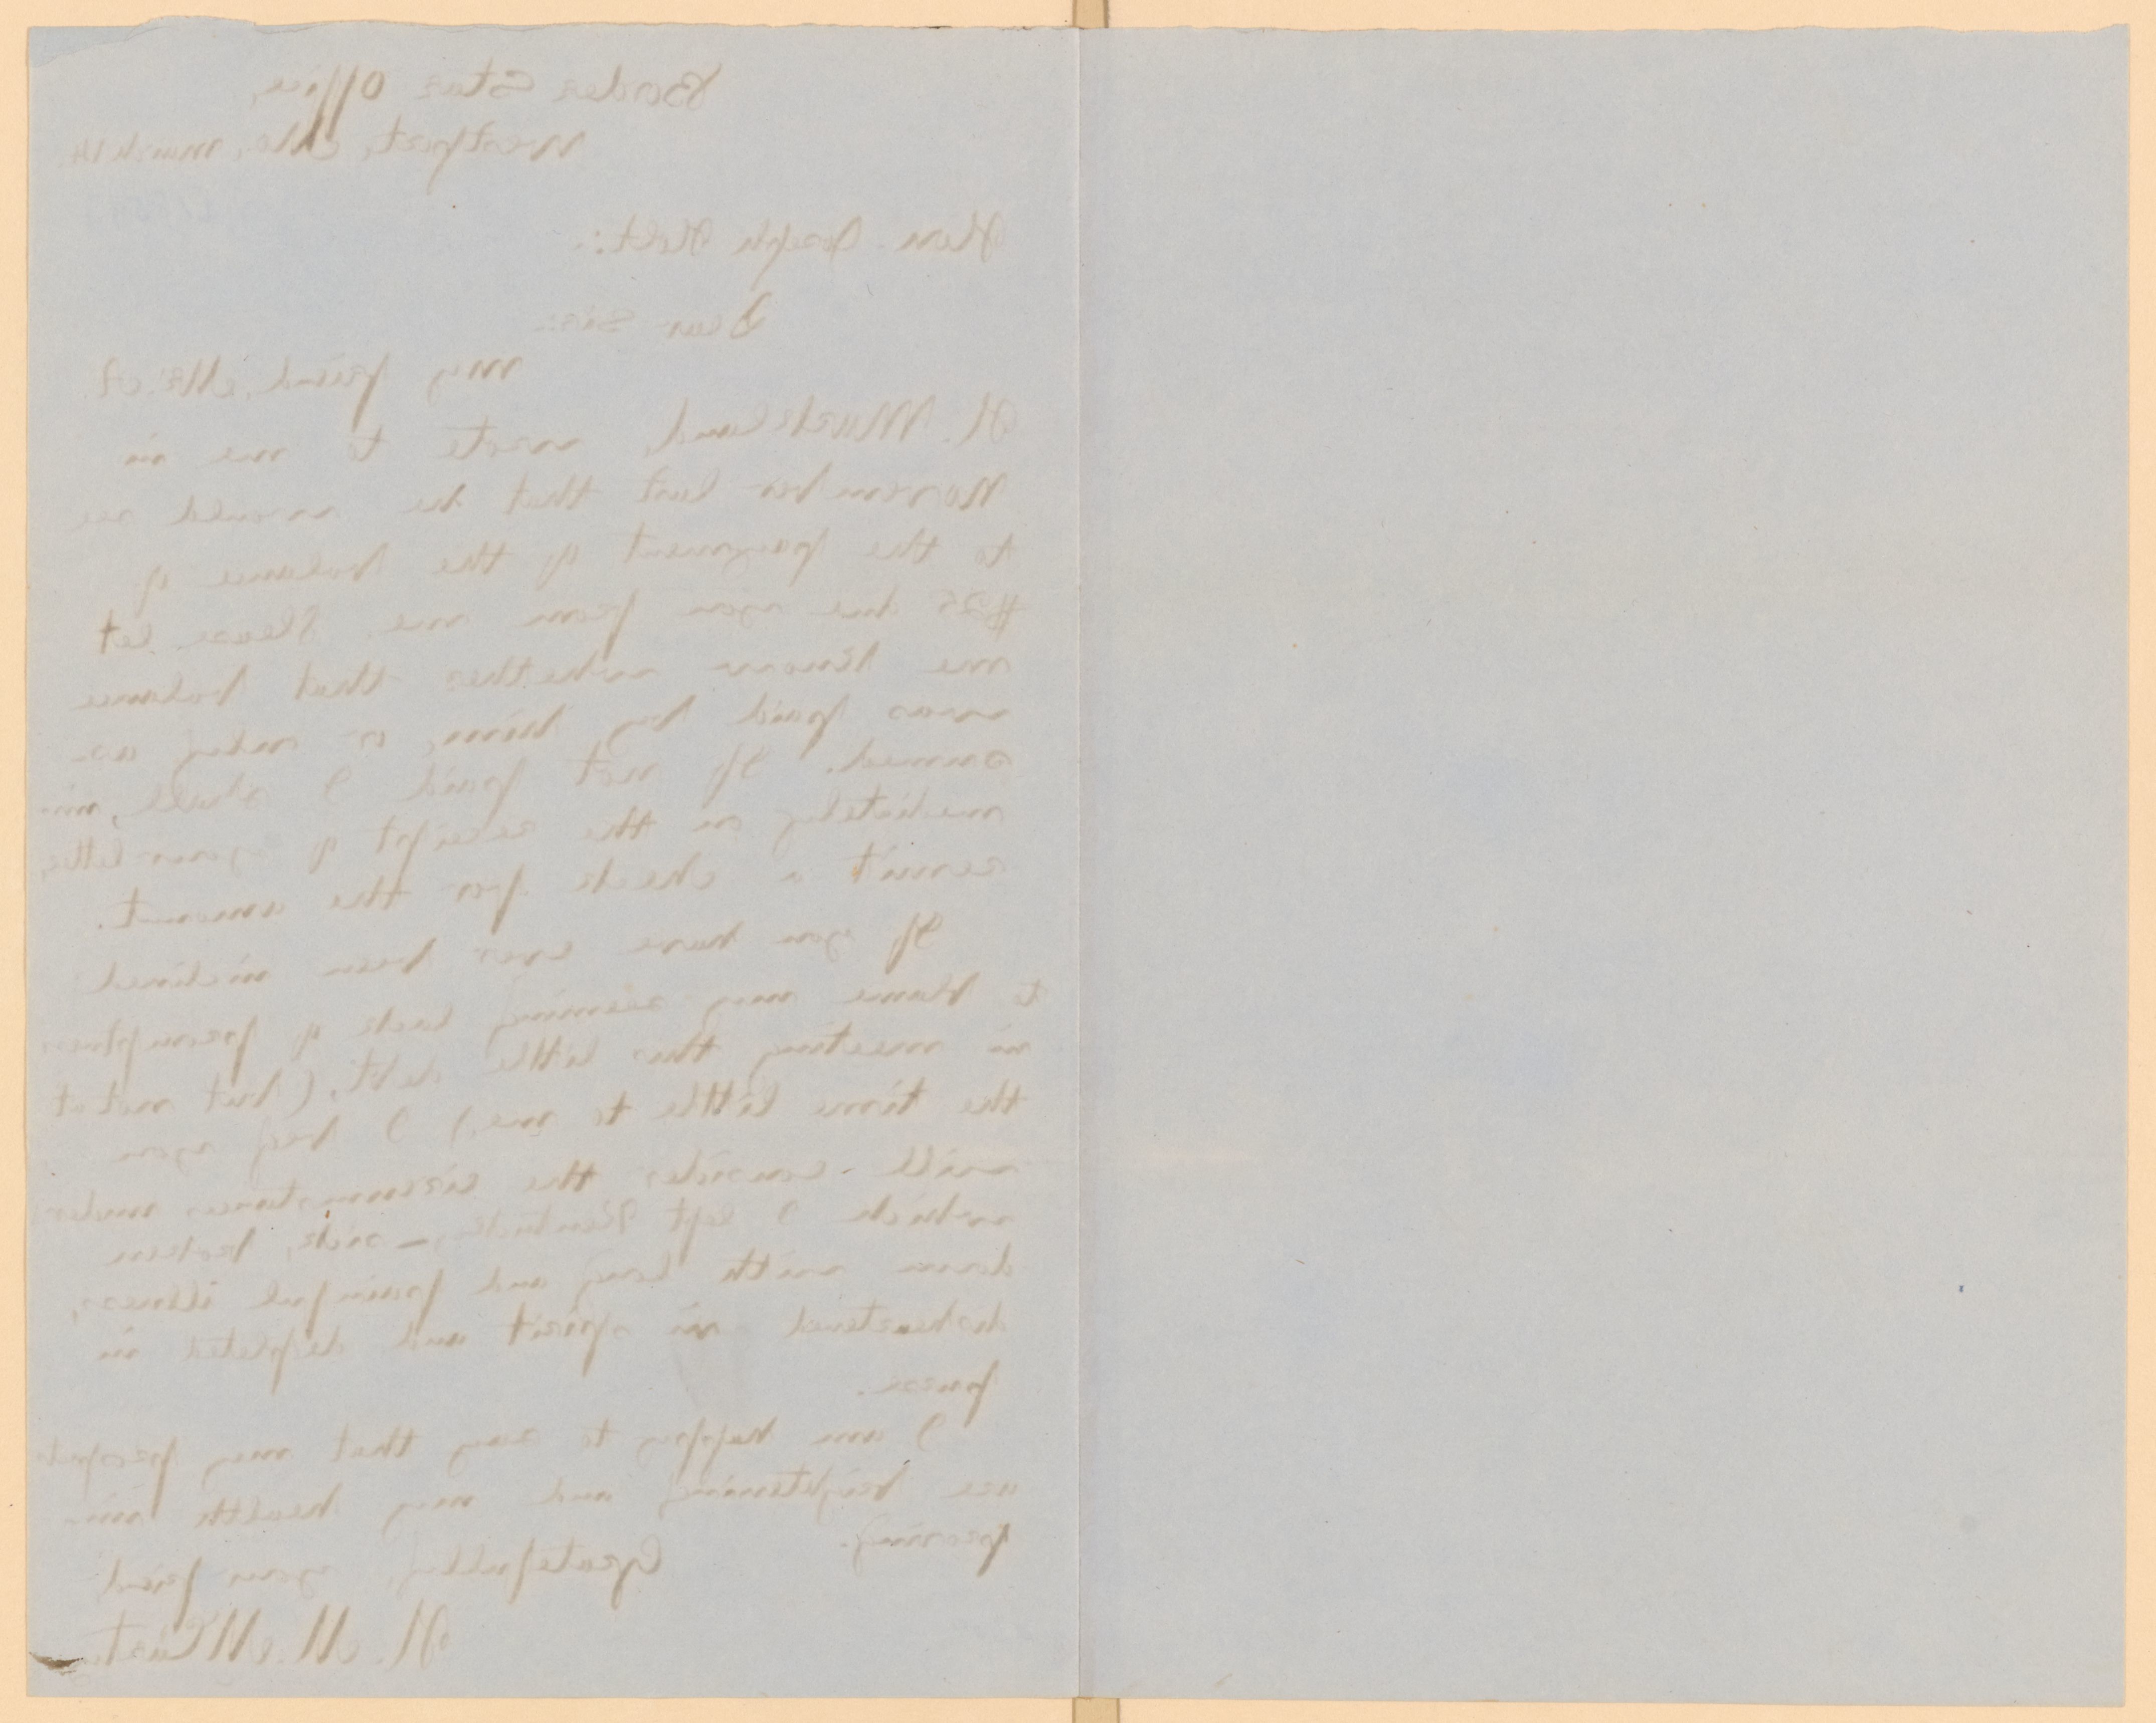 Border Star Office,
Westport, Mo., March 14
Hon. Joseph Holt:
Dear Sir:
My friend, Mr. A.
H. Markland, wrote to me in
November last that he would see
to the payment of the balance of
$25 due you from me. Please let
me know whether that balance
was paid by him, or only as-
sumed. If not paid I shall, im-
mediately on the receipt of your letter,
remit a check for the amount.
If you have ever been inclined
to blame my seeming lack of promptness
in meeting this little debt, (but not at
the time little to me,) I beg you
will consider the circumstances under
which I left Kentucky,—sick, broken
down with long and painful illness,
disheartened in spirit and depleted in
purse.
I am happy to say that my prospects
are brightening and my health im-
proving.
Gratefully, your friend
H. M. McCarty